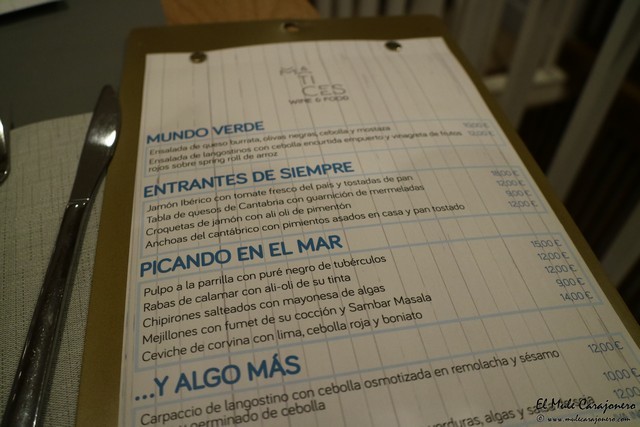 MA
TI
CES
WINE & FOOD
MUNDO VERDE
Ensalada de queso burrata, olivas negras, cebolla y mostaza
Ensalada de langostinos con cebolla encurtida empuerto y vinagreta de frutos
rojos sobre spring roll de arroz
ENTRANTES DE SIEMPRE
Jamón Ibérico con tomate fresco del país y tostadas de pan
Tabla de quesos de Cantabria con guarnición de mermeladas 12,00 €
Croquetas de jamón con ali oli de pimentón 9,00 €
Anchoas del cantábrico con pimientos asados en casa y pan tostado 12,00 €
PICANDO EN EL MAR
Pulpo a la parrilla con puré negro de tubérculos 15,00 €
Rabas de calamar con ali-oli de su tinta 12,00 €
Chipirones salteados con mayonesa de algas 12,00 €
Mejillones con fumet de su cocción y Sambar Masala 9,00 €
Ceviche de corvina con lima, cebolla roja y boniato 14,00 €
...Y ALGO MÁS
Carpaccio de langostino con cebolla osmotizada en remolacha y sésamo 12,00 €
y germinado de cebolla 10,00 €
verduras, algas y
El Mule Carajonero
© www.mulecarajonero.com